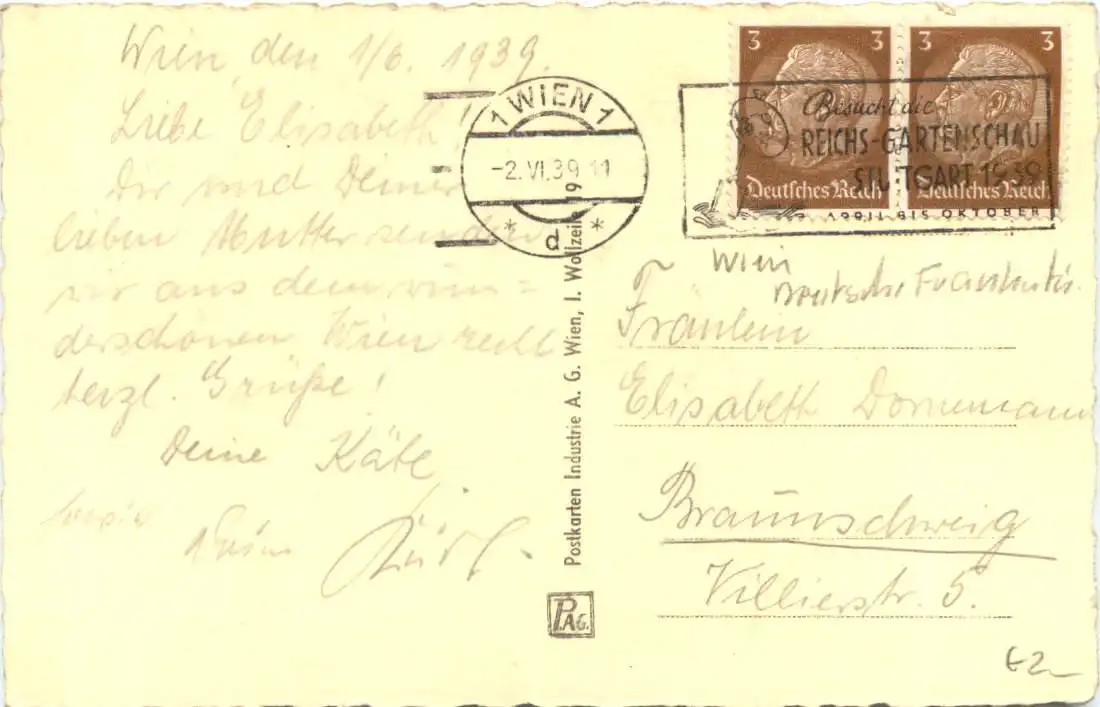 Wien, den 1/6. 1939.
Liebe Elisabeth!
Dir und Deiner
lieben Mutter senden
wir aus dem wun=
derschönen Wien recht
herzl. Grüße!
Deine Käte
sowie
3 3 3 3
Deutsches Reich Deutsches Reich
1 WIEN 1
-2. VI. 39 11
* d *
Besucht die
REICHS-GARTENSCHAU
STUTTGART 1939
APRIL BIS OKTOBER
Postkarten Industrie A. G. Wien, I. Wollzeile 19
P.AG.
Wien
Deutsche
Fräulein
Elisabeth Dornemann
Braunschweig
Villierstr. 5.